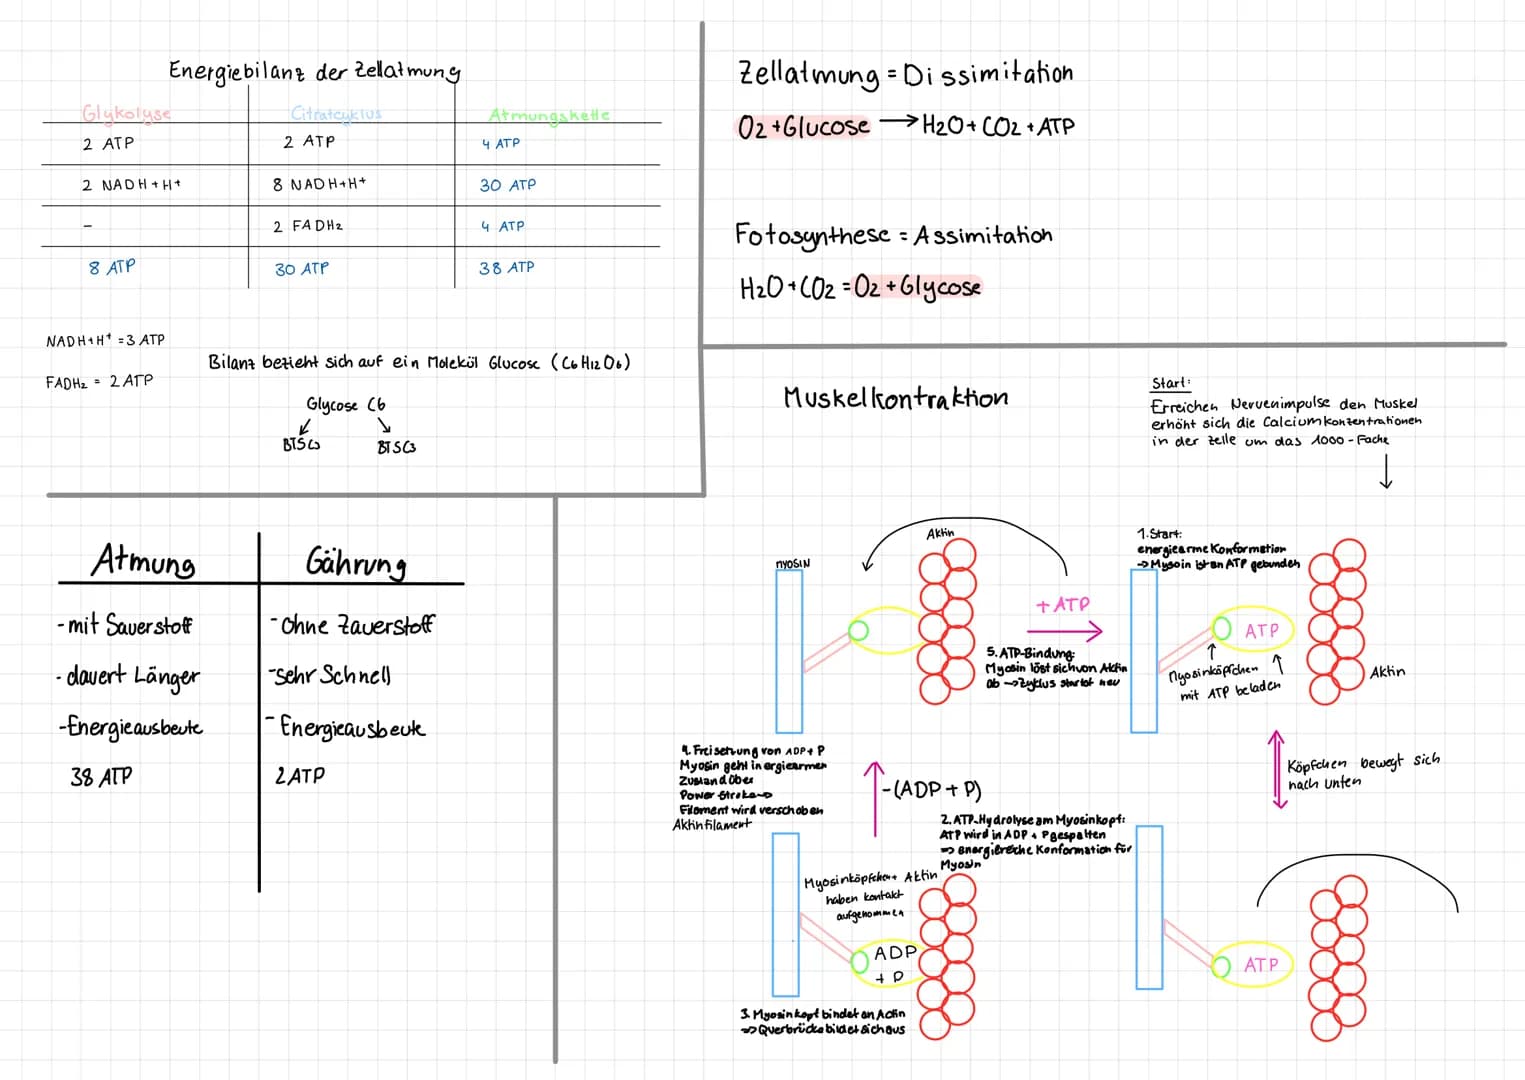 Energiebilanz der Zellatmung
Glykolyse Citratcyklus Atmungskette
2 ATP 2 ATP 4 ATP
2 NADH+H+ 8 NADH+H+ 30 ATP
- 2 FADH2 4 ATP
8 ATP 30 ATP 38 ATP
NADH+H+ = 3 ATP
FADH2 = 2 ATP
Bilanz bezieht sich auf ein Molekül Glucose (C6H12O6)
Glycose C6
BTSC3 BTSC3
Zellatmung = Dissimitation
O2+Glucose → H2O+CO2+ATP
Fotosynthese = Assimitation
H2O+CO2 = O2+Glycose
Atmung
- mit Sauerstoff
- dauert Länger
- Energieausbeute
38 ATP
Gährung
- Ohne Zauerstoff
- Sehr Schnell
- Energieausbeute
2 ATP
Muskelkontraktion
Start:
Erreichen Nervenimpulse den Muskel
erhöht sich die Calciumkonzentrationen
in der Zelle um das 1000-Fache
1. Start:
energiearme Konformation
→ Mysoin ist an ATP gebunden
ATP
Myosinköpfchen
mit ATP beladen
Aktin
Köpfchen bewegt sich
nach unten
ATP
2. ATP-Hydrolyse am Myosinkopf:
ATP wird in ADP + P gespalten
⇒ energiereiche Konformation für
Myosin
Myosinköpfchen + Aktin
haben kontakt
aufgenommen
ADP
+ P
3. Myosinkopf bindet an Actin
⇒ Querbrücke bildet sich aus
-(ADP + P)
4. Freisetzung von ADP + P
Myosin geht in ergiearmen
Zustand über
Power Stroke →
Filament wird verschoben
Aktinfilament
MYOSIN
Aktin
+ ATP
5. ATP-Bindung:
Myosin löst sich von Aktin
ab → Zyklus startet neu